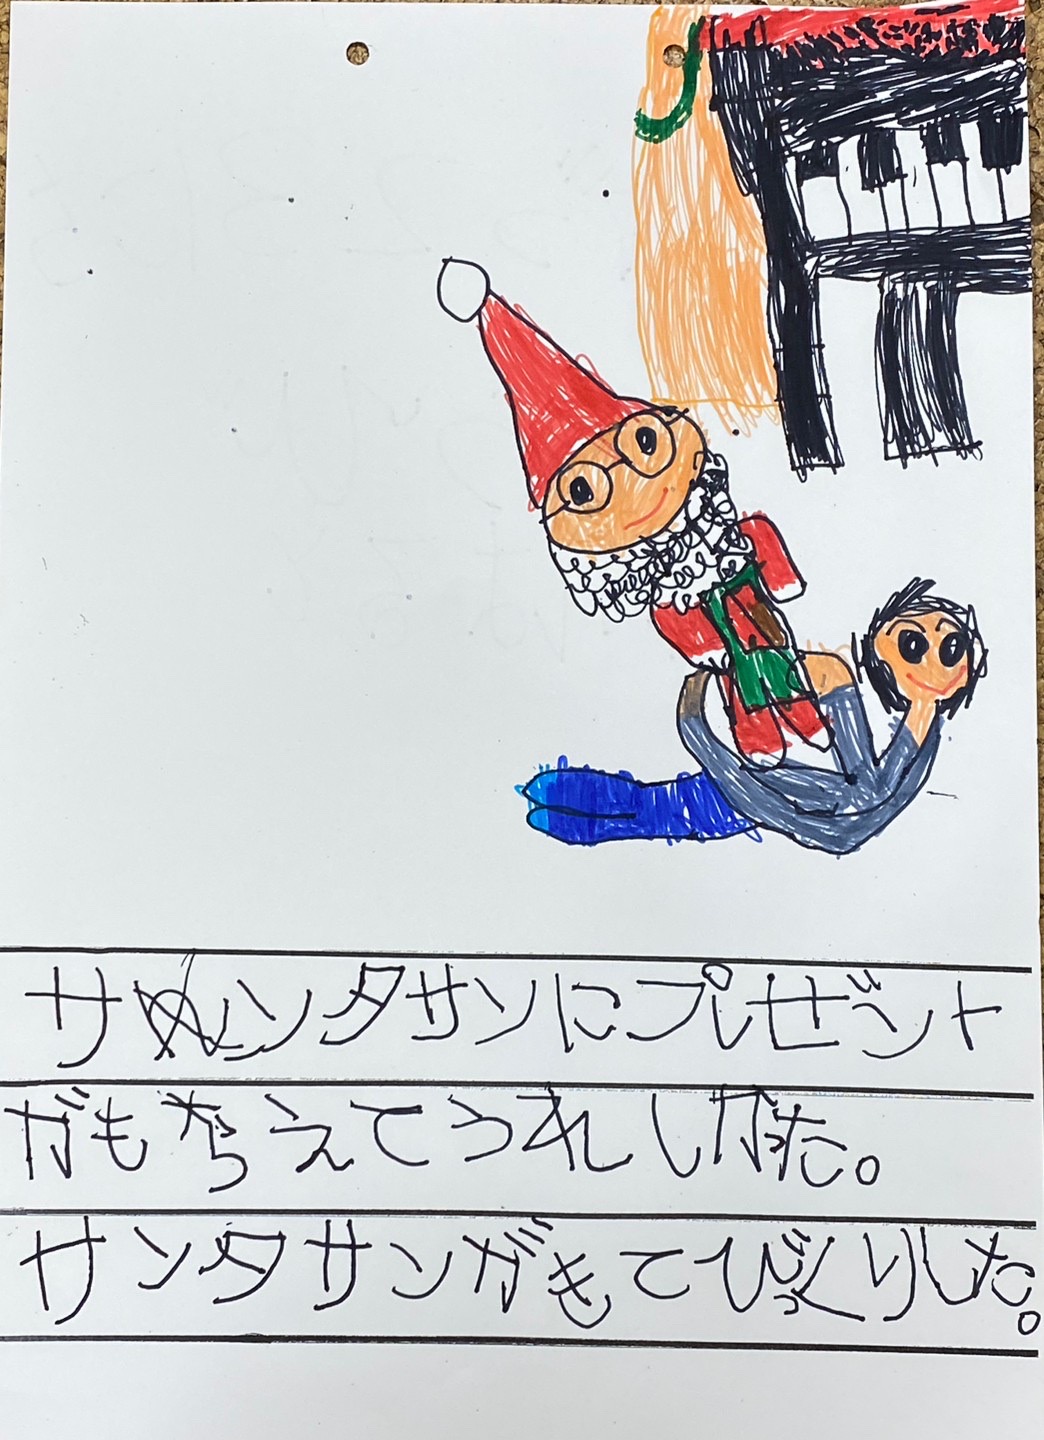 サンタサンにプレゼント
がもらえてうれしかった。
サンタサンがもてびっくりした。